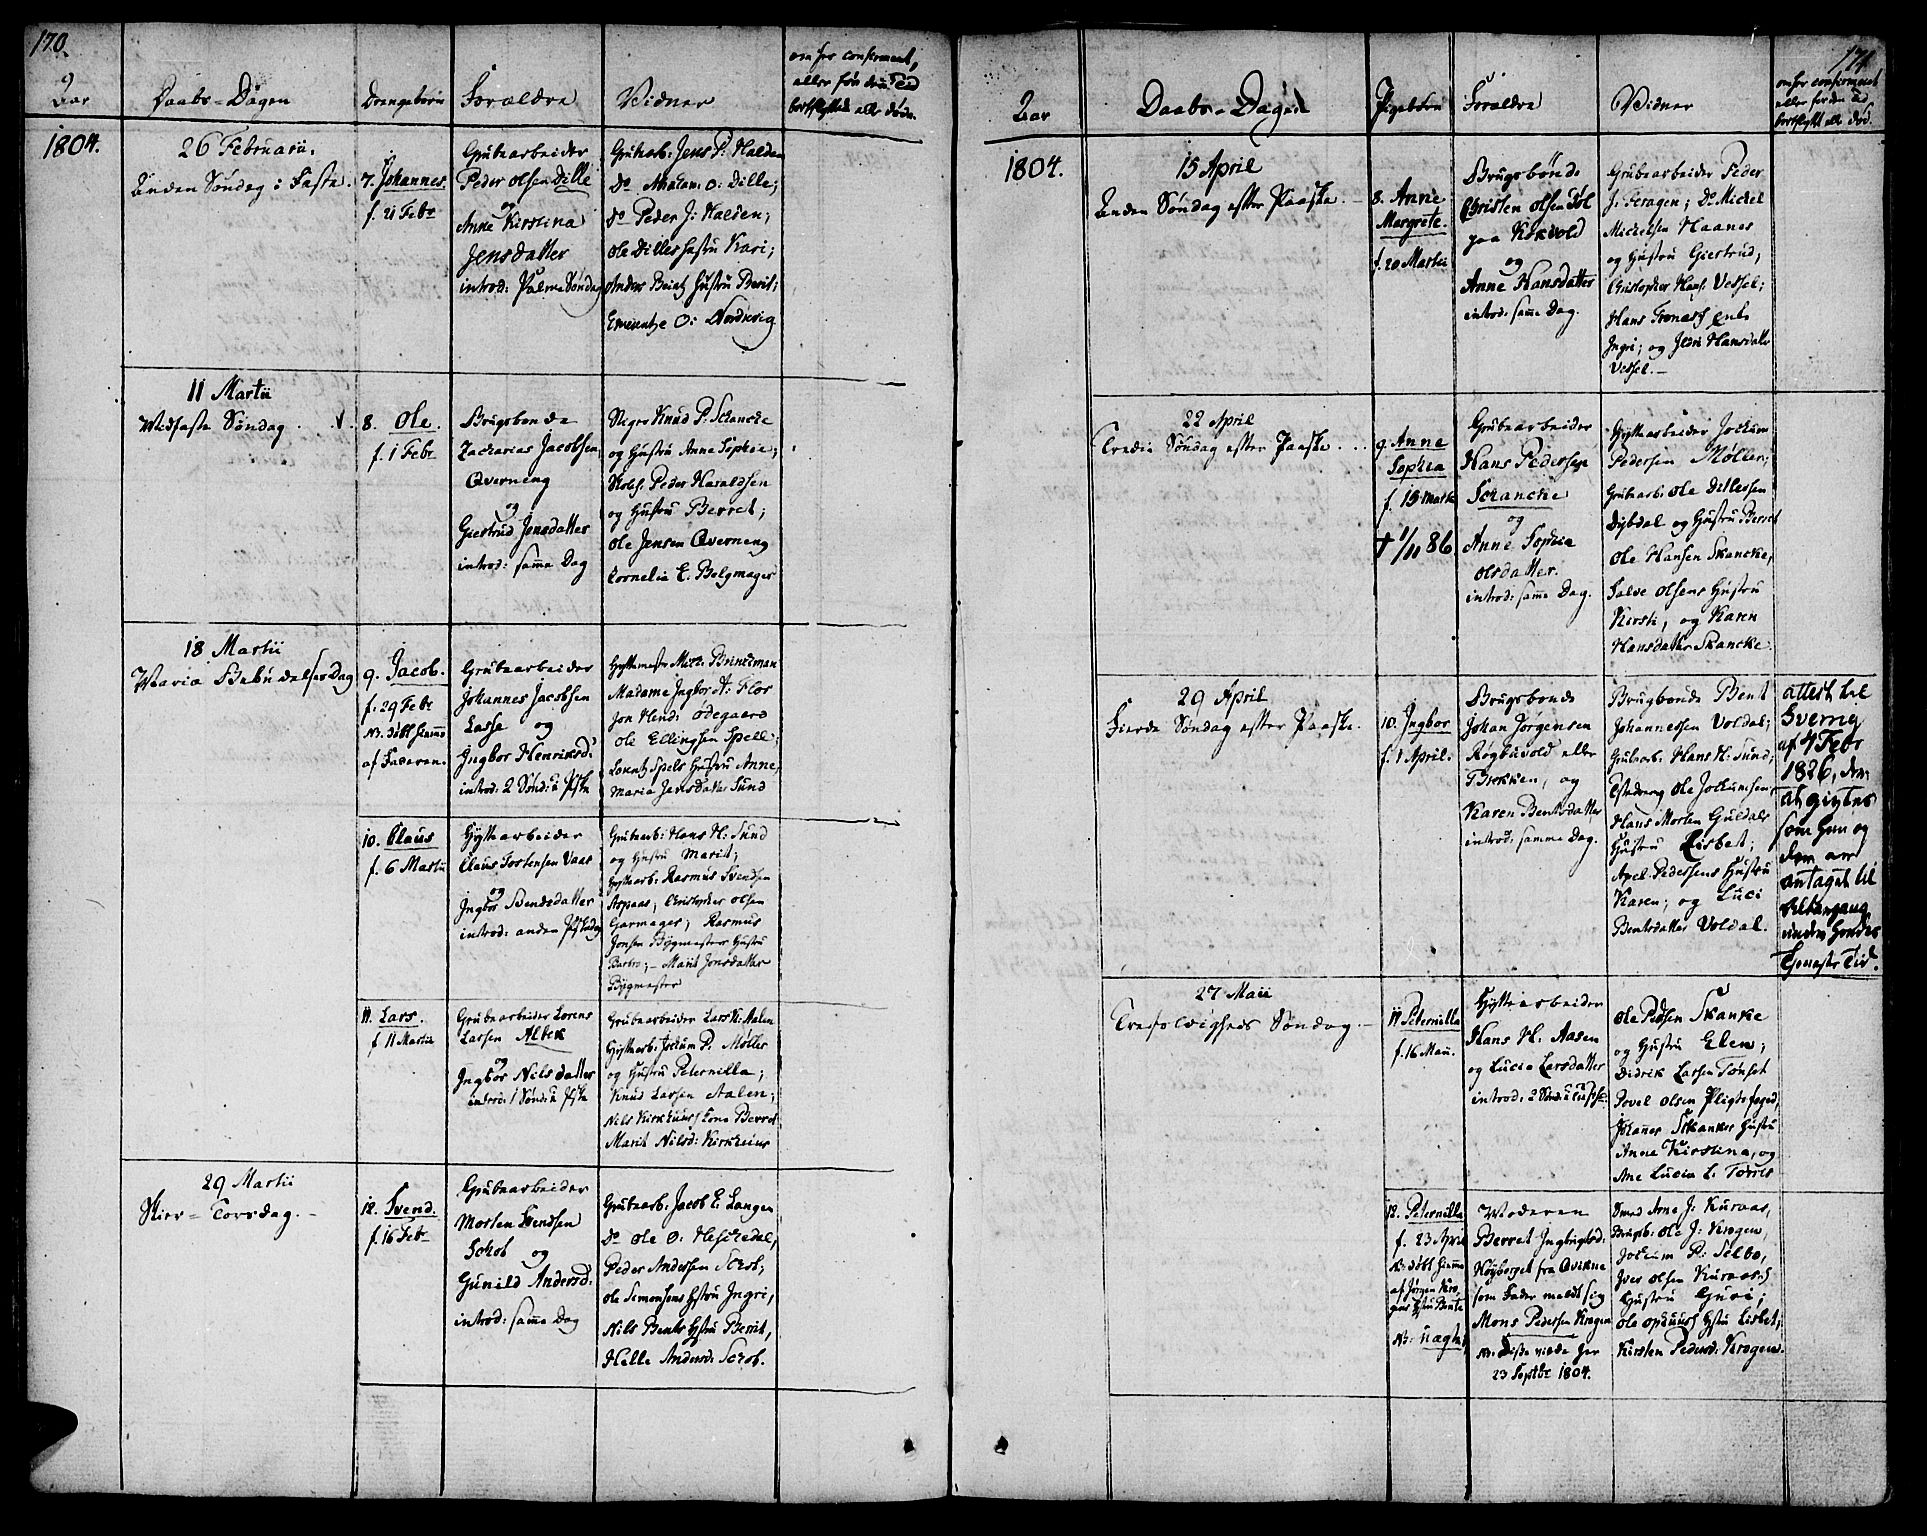 170.
Aar
Daabs-Dagen
Drengebørn
Forældre
Vidner
om her confirmeret,
eller før den Tid
bortflyttet eller døde.
1804.
26 Februarii.
Anden Søndag i Faste.
7. Johannes.
f. 21 Febr
Grubearbeider
Peder Olsen Dille
og
Anne Kirstina
Jensdatter
introd: Palme Søndag
Grubarb: Jens P: Halden
Do Abraham O: Dille;
Do Peder J: Halden;
Ole Dilles Hustru Kari;
Anders Bentz Hustru Berit;
O: Nordvig
11 Martii
Midfaste Søndag.
8. Ole.
f. 1 Febr
Brugsbonde
Zacharias Jacobsen
Qverneng
og
Giertrud Jensdatter
introd: samme Dag
Knud P: Schancke
og Hustru Anne Sophie;
Peder Haraldsen
og Hustru Berret;
Ole Jensen Qverneng
Cornelia E. Belgmager
18 Martii
Mariæ Bebudelses Dag
9. Jacob.
f. 29 Febr
NB. døbt hjemme
af Faderen.
Grubearbeider
Johannes Jacobsen
Lasse og
Ingbor Henriksd:
introd: 2 Sønd: a Pske
Hyttemester Mich: Brinckman
Madame Ingbor A: Flor
Jon Hend: Ødegaard
Ole Ellingsen Spell
Lorentz Spels Hustru Anne,
Maria Jansdatter Sund
10. Claus
f. 6 Martii
Hyttearbeider
Claus Tostensen Vaas
og
Ingbor Svendsdatter
introd: anden Pskedag
Grubearb: Hans H: Sund
og Hustru Marit;
Hyttearb: Rasmus Svendsen
Aspaas; Christopher Olsen
Garmager; Rasmus
Jonsen Bygmesters Hustru
Barbro; - Marit Jonsdatter
Bygmester
11. Lars.
f 11 Martii
Grubearbeider Lorens
Larsen Albek
og
Ingbor Nilsdatter
introd: 1 Sønd: a Pske
Grubearbeider Lars K: Aalen
Hyttearb: Jockum P: Møller
og Hustru Peternilla;
Knud Larsen Aalen;
Nils Kirkhuus's Kone Berret
Marit Nilsd: Kirkhuus
29 Martii
Skier-Torsdag.
12. Svend.
f. 16 Febr
Grubearbeider
Morten Svendsen
Schot og
Gunild Andersd:
introd: samme Dag
Grubearb: Jacob E: Langen
Do Ole O: Heskedal,
Peder Andersen Schot,
Ole Simonsens Hstru Ingri,
Nils Bents Hstru Berrit,
Helle Andersd: Schot.
171
Aar
Daabs-Dagen
Pigebørn
Forældre
Vidner
om her confirmeret
eller før den Tid
bortflyttet ell. død.
1804.
15 April
Anden Søndag efter Paaske.
8. Anne
Margrete.
f. 20 Martii
Brugsbonde
Christen Olsen Føl
paa Kokvold
og
Anne Hansdatter
introd: samme Dag.
Grubearbeider Peder
J: Feragen; Do Mickel
Mickelsen Haanes
og Hustru Giertrud;
Christopher Hans: Vessel;
Hans Tronæs's Enke
Ingri; og Hansdatter
Vessel.
22 April
Tredie Søndag efter Paaske.
9. Anne
Sophia
f. 15 Martii
† 1/11 86
Grubearbeider
Hans Pedersen
Schancke
og
Anne Sophia
Olsdatter.
introd: samme Dag.
Hyttearbeider Jockum
Pedersen Møller;
Grubearb: Ole Ditlevsen
Dybdal og Hustru Berret
Ole Hansen Skancke,
Salve Olsens Hustru
Kirsti, og Karen
Hansdatter Skancke.
29 April
Fierde Søndag efter Paaske.
10. Ingbor
f. 1 April.
Brugsbonde
Johan Jorgensen
Røgbuvold eller
Brekken, og
Karen Bentsdatter
introd: samme Dag.
Brugbonde Bent
Johannessen Voldal;
Grubearb: Hans H: Sund;
Ole Jockumsen;
Hans Morten Guldals
Hustru Lisbet;
Axel Pedersens Hustru
Karen; og Luci
Bentsdatter Voldal.
attest til
Sverrig
af 4 Febr
1826, dens
at giftes
som hun og
der
antaget til
Altergang
under hendes
Tieneste Tid.
27 Maii
Trefoldigheds Søndag.
11 Peternilla
f. 16 Maii.
Hyttearbeider
Hans H: Aasen
og Lucia Larsdatter
introd: 2 Sønd:
Ole Pedsen Skanke
og Hustru Elen;
Didrik Larsen Tønset
Povel Olsen Pligtsfoged,
Johannes Skankes Hustru
Anne Kirstina, og
Ane Lucia L. Torres
12. Peternilla
f. 23 April
NB: døbt hiemme
af Jørgen
Hstru Bente
NB: uægte
Moderen
Berret Ingbrigtsd:
Høyberget fra Qvikne
som Fader meldt sig
Mons Pedersen Krogen
NB: Disse viede her
23 Septbr 1804.
Smed Arne J: Kuraas,
Brugsb: Ole J: Krogen,
Jockum P: Selbo,
Iver Olsen Kuraas's
Hustru Guri;
Ole Hstru Lisbet;
Kirsten Pedersd: Krogen.